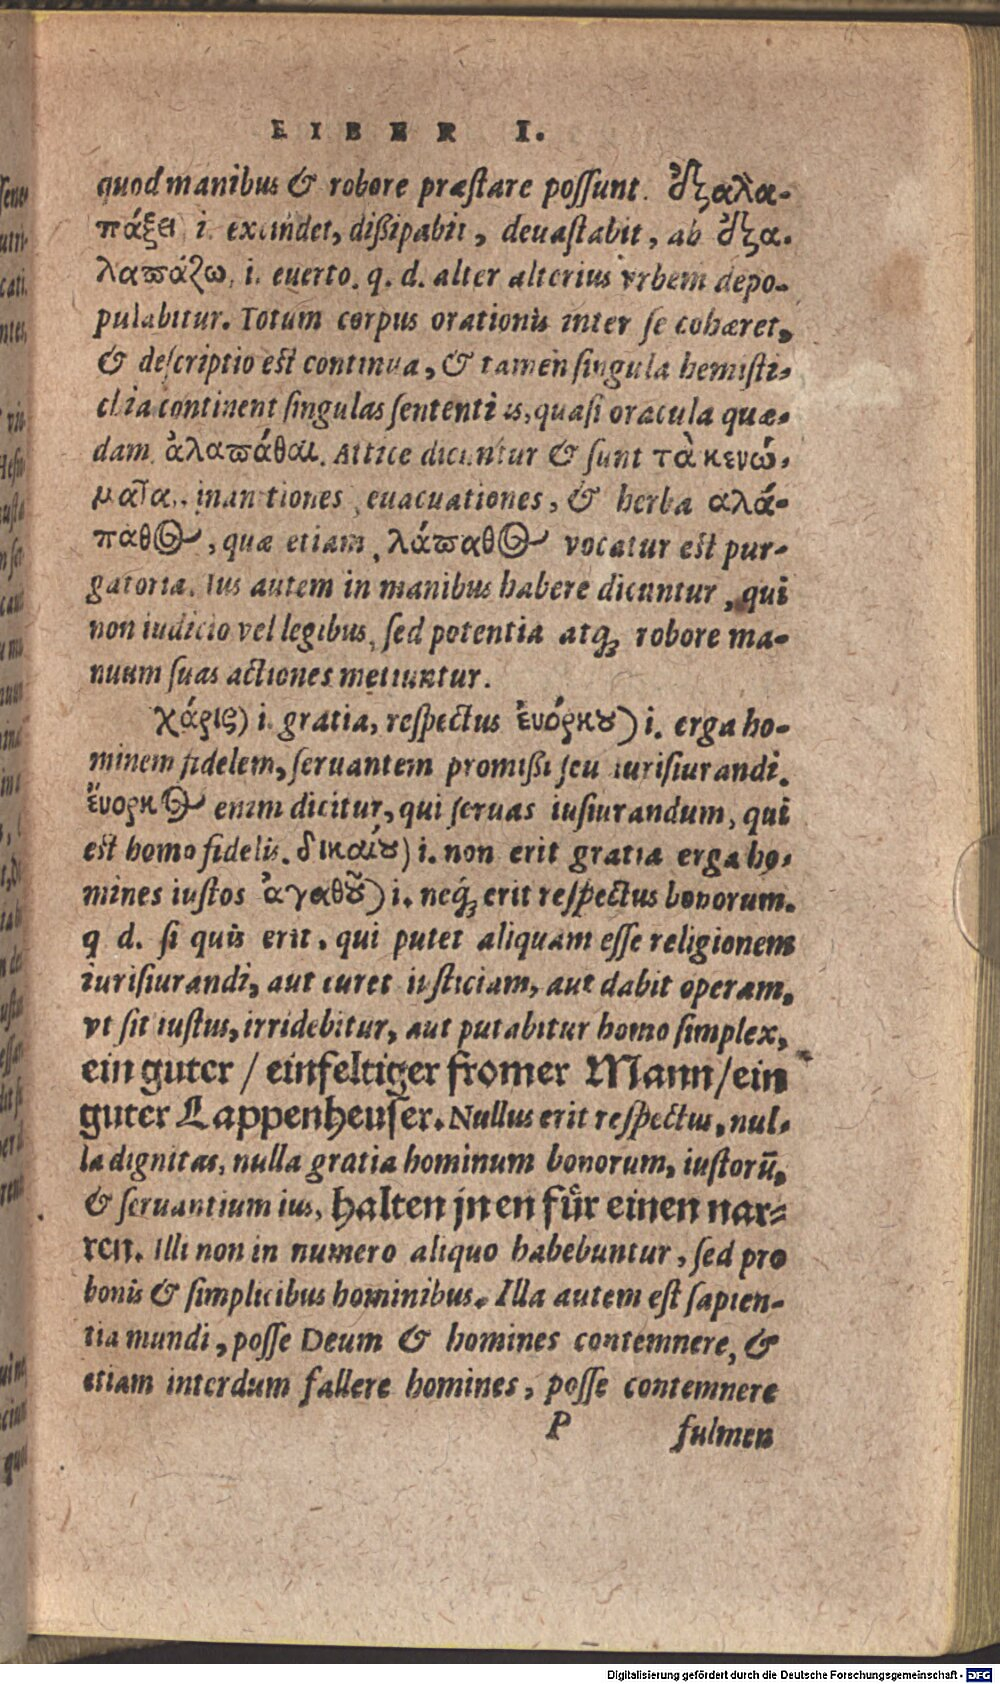 LIBER I.
quod manibus & robore præstare possunt. ἐξαλα-
πάξει i. excindet, dißipabit, deuastabit, ab ἐξα-
λαπάζω, i. euerto. q. d. alter alterius vrbem depo-
pulabitur. Totum corpus orationis inter se cohæret,
& descriptio est continua, & tamen singula hemisti-
chia continent singulas sententias, quasi oracula quæ-
dam. ἀλαπάθαι. Attice dicuntur & sunt τὰ κενώ-
ματα, inanitiones, euacuationes, & herba αλά-
παθος, quæ etiam λάπαθος vocatur est pur-
gatoria. Ius autem in manibus habere dicuntur, qui
non iudicio vel legibus, sed potentia atq; robore ma-
nuum suas actiones metiuntur.
χάρις) i. gratia, respectus ἐυόρκου) i. erga ho-
minem fidelem, seruantem promißi seu iurisiurandi.
ἔυορκος enim dicitur, qui seruas iusiurandum, qui
est homo fidelis. δικαίου) i. non erit gratia erga ho-
mines iustos ἀγαθοῦ) i. neq; erit respectus bonorum.
q d. si quis erit, qui putet aliquam esse religionem
iurisiurandi, aut curet iusticiam, aut dabit operam,
vt sit iustus, irridebitur, aut putabitur homo simplex,
ein guter / einfeltiger fromer Mann / ein
guter Lappenheuser. Nullus erit respectus, nul-
la dignitas, nulla gratia hominum bonorum, iustorū,
& seruantium ius, halten jnen fuͤr einen nar-
ren. Illi non in numero aliquo habebuntur, sed pro
bonis & simplicibus hominibus. Illa autem est sapien-
tia mundi, posse Deum & homines contemnere, &
etiam interdum fallere homines, posse contemnere
P fulmen
Digitalisierung gefördert durch die Deutsche Forschungsgemeinschaft - DFG